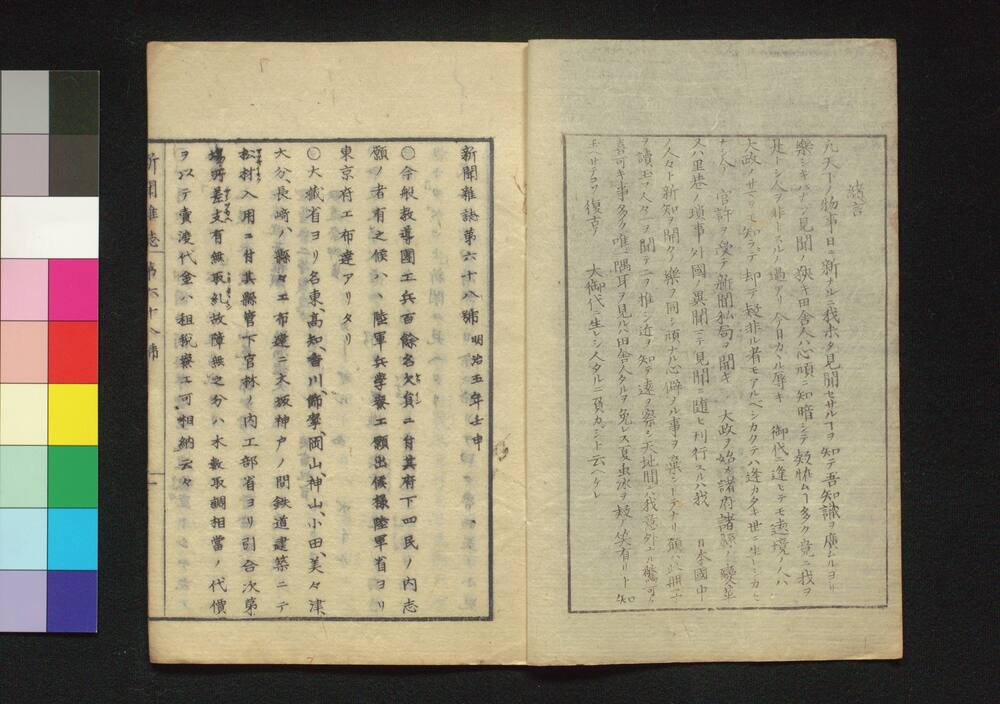 緒言
凡天下ノ物事日ニ新ナルニ我未タ見聞セサルヿヲ知テ吾知識ヲ廣ムルヨリ
樂シキハナシ見聞ノ狹キ田舎人ハ心頑ニ知暗シテ疑惟ムヿ多ク竟ニ我ヲ
是トシ人ヲ非トスルノ過アリ今日カヽル辱キ 御代ニ逢ヒテモ遠境ノ人ハ
大政ノサマヲモ知ラデ却テ疑非ル者モアルヘシカクテハ逢カタキ世ニ生レシカヒ
ナシ今 官許ヲ受テ新聞私局ヲ開キ 大政ヲ始メ諸府諸縣ノ變革
又ハ里巷ノ瑣事外國ノ異聞ニテ見聞ニ随ヒ刊行スルハ我 日本國中
ノ人々ト新知ヲ開クノ樂ヲ同シ頑ナル心僻メル事ヲ棄シートナリ願ハ此冊子
ヲ讀玉フ人々一ヲ聞テ二ヲ推シ近ヲ知テ遠ヲ察シ天地間ハ我意外ニ驚可ク
喜可キ事多ク唯一隅耳ヲ見ル田舎人タルヲ免レス夏虫氷ヲ疑ノ笑有リト知
玉ヘサテコソ復古ノ 大御代ニ生レシ人タルニ負カシト云ヘケレ
新聞雜誌第六十八號 明治五年壬申
〇今般教導團工兵百餘名欠員ニ付其府下四民ノ内志
願ノ者有之候ハヽ陸軍兵學寮エ願出候樣陸軍省ヨリ
東京府エ布達アリタリ
〇大藏省ヨリ名東、高知、香川、飾磨、岡山、神山、小田、美々津、
大分、長﨑ノ八縣々エ布達ニ大坂神戸ノ間鉄道建築ニテ
松材入用ニ付其縣管下官林ノ内工部省ヨリ引合次第
場所差支有無取糺故障無之分ハ木數取調相當ノ代價
ヲ以テ賣渡代金ハ租税寮エ可相納云々
新聞雜誌 第六十八號 一